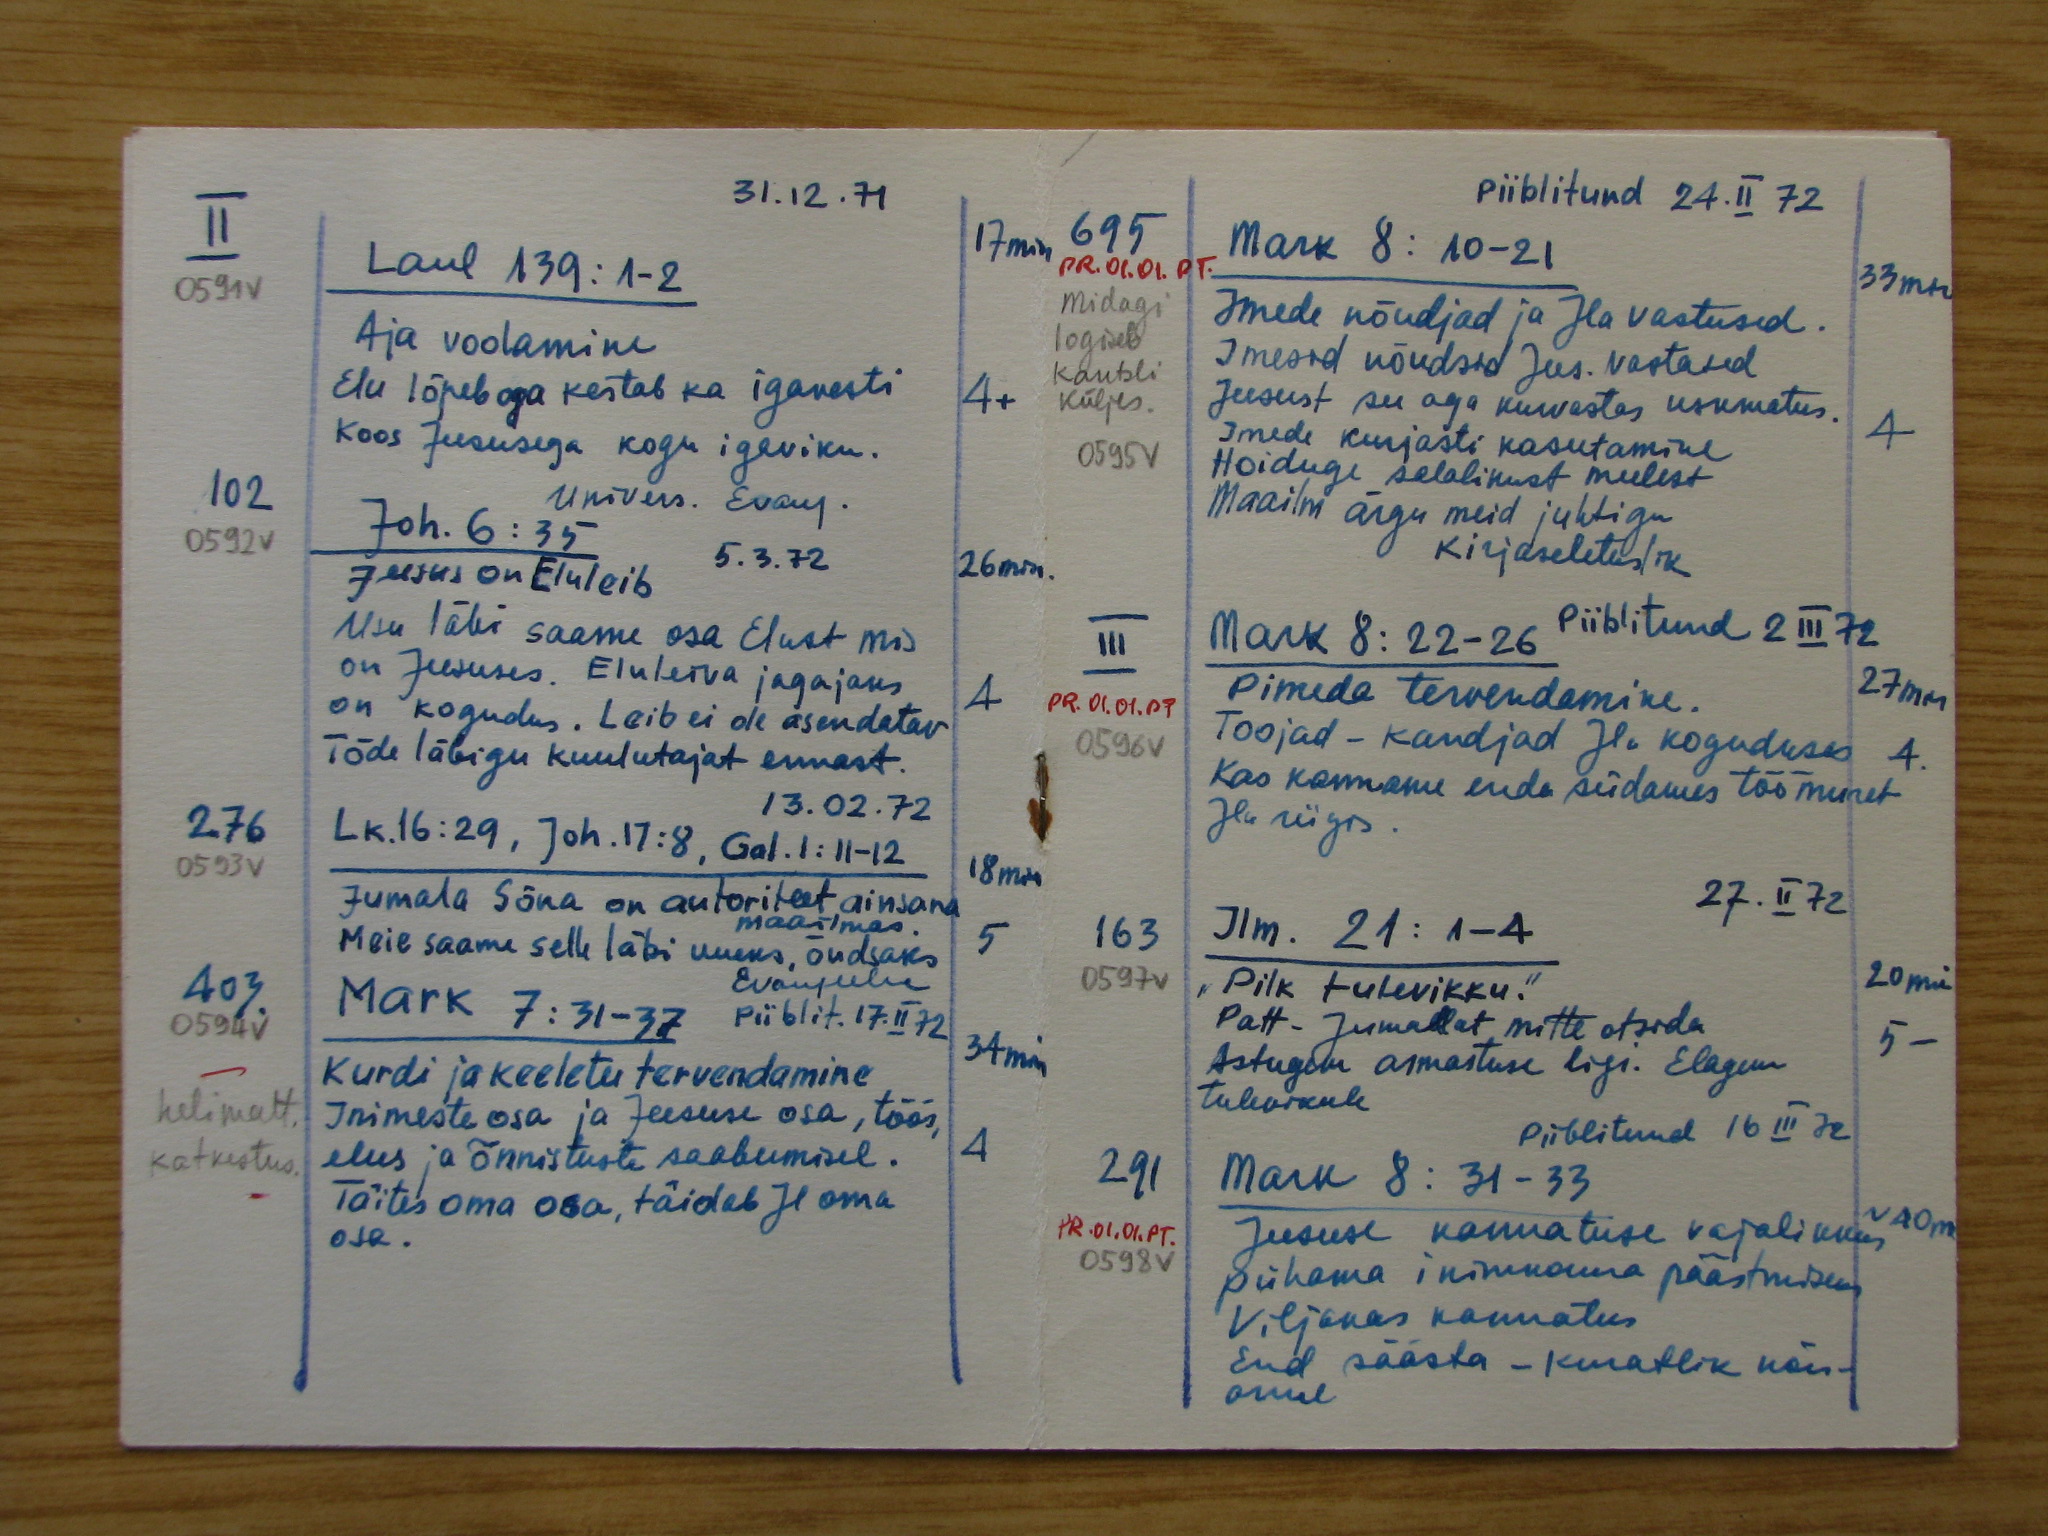 31.12.71
II
0591V
Laul 139:1-2
17min
Aja voolamine
Elu lõpeb aga kestab ka igavesti
4+
Koos Jeesusega kogu igaviku.
102
0592V
Univers. Evang.
Joh. 6:35
5.3.72
26min.
Jeesus on Eluleib
Usu läbi saame osa Elust mis
on Jeesuses. Eluleiva jagajaks
4
on kogudus. Leib ei ole asendatav
Tõde läbigu kuulutajat ennast.
13.02.72
276
0593V
Lk.16:29, Joh.17:8, Gal.1:11-12
18min
Jumala Sõna on autoriteet ainsana
maailmas.
5
Meie saame selle läbi uueks, õndsaks
Evangeelne
403.
0594V
Mark 7:31-37
Piiblit. 17.II 72
34min
Kurdi ja keeletu tervendamine
helimatt.
katkestus.
Inimeste osa ja Jeesuse osa, töös,
4
elus ja Õnnistuste saabumisel.
Täites oma osa, täidab Jl oma
osa.
Piiblitund 24.II 72
695
PR.01.01.PT.
Mark 8: 10-21
33min
Midagi
logiseb
kantsli
küljes.
0595V
Imede nõudjad ja Jla vastused.
Imesid nõudsid Jees. vastased
Jeesust see aga kurvastas uskmatus.
4-
Imede kurjasti kasutamine
Hoiduge salalikust meelest
Maailm ärgu meid juhtigu
Kirjaseletuslik
III
PR.01.01.PT
0596V
Mark 8: 22-26 Piiblitund 2 III 72
27min
Pimeda tervendamine.
Toojad - kandjad Jla koguduses
4.
Kas kanname enda südames töömuret
Jla riigis.
27.II 72
163
0597V
Ilm. 21: 1-4
20min
"Pilk tulevikku."
Patt - Jumalat mitte otsida
5-
Astugem armastuse ligi. Elagem
tulevikule
Piiblitund 16 III 72
291
PR.01.01.PT.
0598V
Mark 8: 31-33
40m
Jeesuse kannatuse vajalikkus
pühama inimkonna päästmiseks
Viljakas kannatus
End säästa - kuratlik nõu-
anne